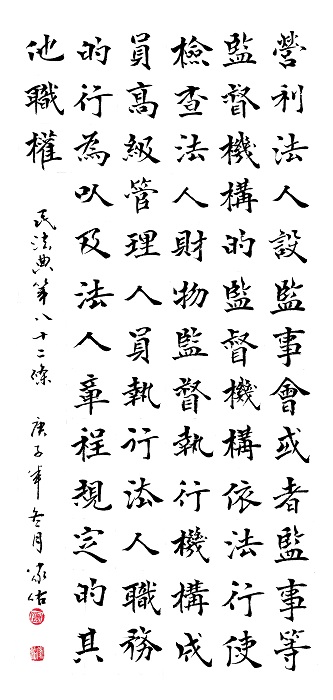 營利法人設監事會或者監事等
監督機構的監督機構依法行使
檢查法人財物監督執行機構成
員高級管理人員執行法人職務
的行為以及法人章程規定的其
他職權
民法典第八十二條 庚子年冬月